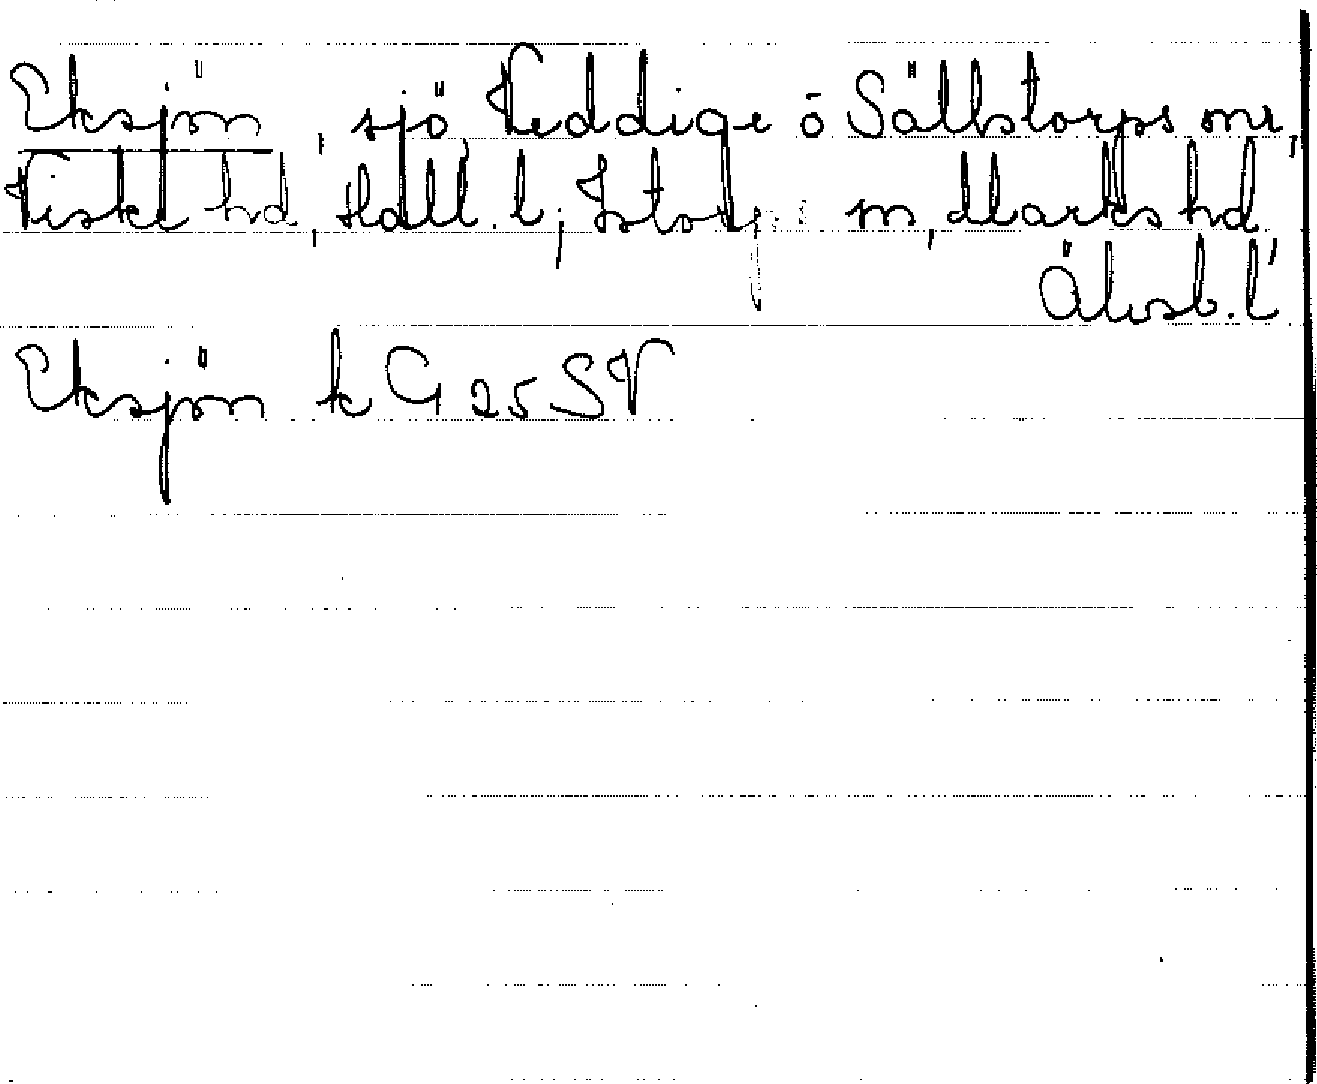 Eksjön, sjö, Veddige o Sällstorps snr,
Viske hd, Hall. l; Istorps sn, Marks hd
Älvsb. l
Eksjön k G 25 SV